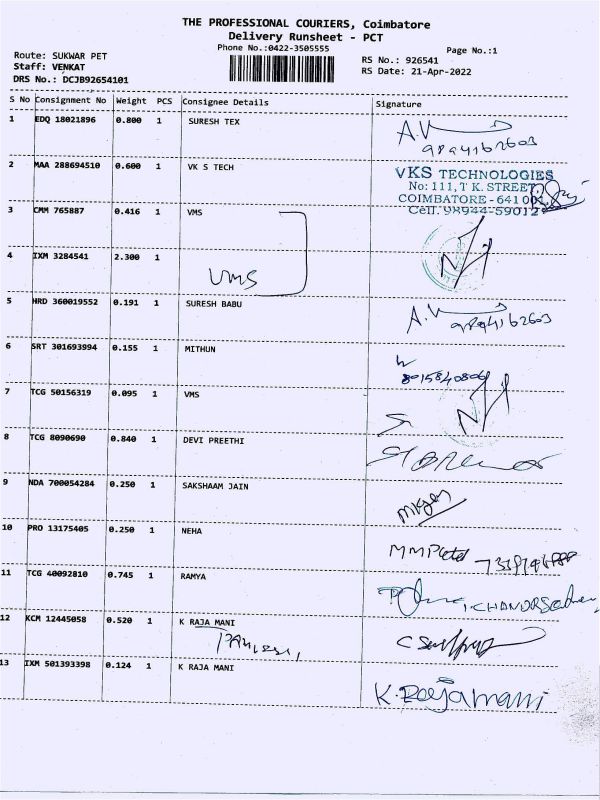 THE PROFESSIONAL COURIERS, Coimbatore
Delivery Runsheet - PCT
Phone No.:0422-3505555
Page No.:1
Route: SUKWAR PET
Staff: VENKAT
DRS No.: DCJB92654101
RS No.: 926541
RS Date: 21-Apr-2022
S No Consignment No Weight PCS Consignee Details Signature
1 EDQ 18021896 0.800 1 SURESH TEX A.V
9894162603
2 MAA 288694510 0.600 1 VK S TECH
VKS TECHNOLOGIES
No: 111, T K. STREET,
COIMBATORE - 641 001.
Cell. 98944-59012
3 CMM 765887 0.416 1 VMS
4 IXM 3284541 2.300 1
VMS
5 HRD 360019552 0.191 1 SURESH BABU A.V
9894162603
6 SRT 301693994 0.155 1 MITHUN
8015840806
7 TCG 50156319 0.095 1 VMS
8 TCG 8090690 0.840 1 DEVI PREETHI
9 NDA 700054284 0.250 1 SAKSHAAM JAIN
10 PRO 13175405 0.250 1 NEHA
11 TCG 40092810 0.745 1 RAMYA
12 KCM 12445058 0.520 1 K RAJA MANI
13 IXM 501393398 0.124 1 K RAJA MANI
K. Rajamani